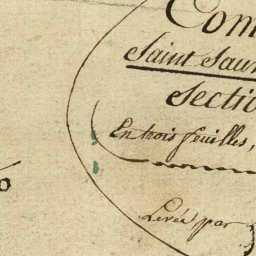 Com
Saint Sauv
Sectio
En trois feuilles,
Levée par